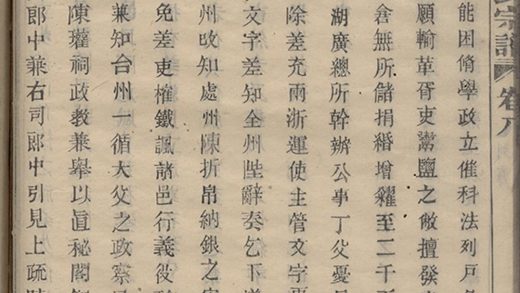 宗譜 卷八
能困脩學政立催科法列戶
願輸革胥吏鬻鹽之敝擅發
倉無所儲捐緡增糴至二千
湖廣總所幹辦公事丁父憂
除差充兩浙運使主管文字
文字差知全州陛辭奏乞下
州改知處州陳折帛納銀之
免差吏榷鐵諷諸邑行義役
兼知台州一循大父之政察
陳瓘祠政教兼舉以直秘閣
郎中兼右司郎中引見上疏